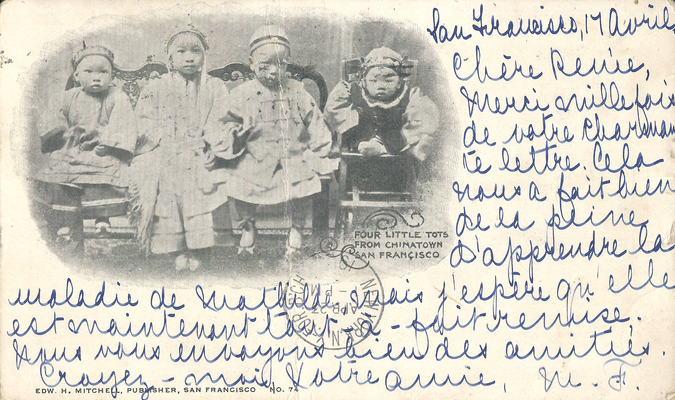 San Francisco, 17 Avril,
Chère Renie,
Merci mille fois
de votre charman
te lettre. Cela
nous a fait bien
de la peine
d'apprendre la
maladie de Mathilde. Mais j'espère qu'elle
est maintenant tout-à-fait remise.
Nous vous envoyons bien des amitiés.
Croyez-moi, Votre amie, M. F.
FOUR LITTLE TOTS
FROM CHINATOWN
SAN FRANCISCO
EDW. H. MITCHELL, PUBLISHER, SAN FRANCISCO NO. 74